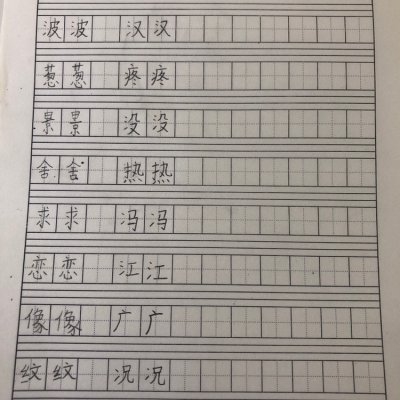 波波 汉汉
葱葱 疼疼
景景 没没
舍舍 热热
求求 冯冯
恋恋 江江
像像 广广
纹纹 况况